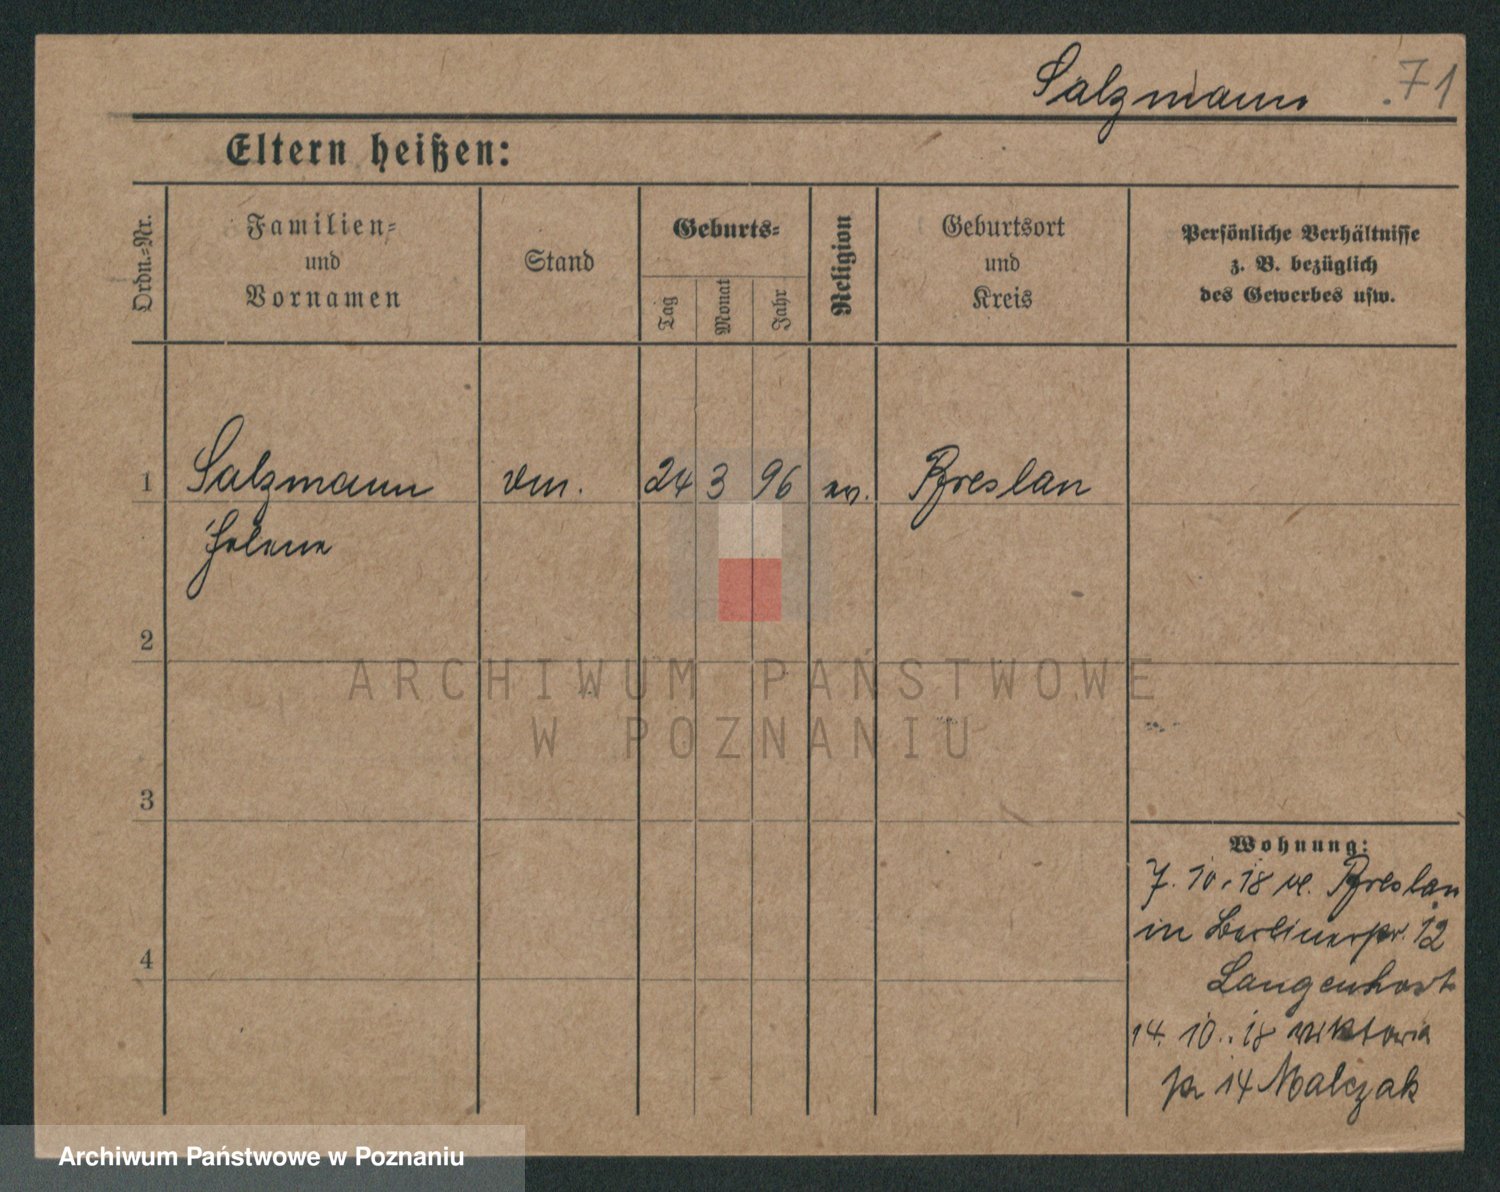 Salzmann 71
Eltern heißen:
Ordn.-Nr.
Familien-
und
Vornamen
Stand
Geburts-
Tag
Monat
Jahr
Religion
Geburtsort
und
Kreis
Persönliche Verhältnisse
z. B. bezüglich
des Gewerbes usw.
1 Salzmann 24 3 96 ev. Breslau
Helene
2
3
4
Wohnung:
7. 10. 18 Breslau
in Berlinerstr. 12
14. 10. 18 Viktoria
14 Malczak
ARCHIWUM PAŃSTWOWE
W POZNANIU
Archiwum Państwowe w Poznaniu